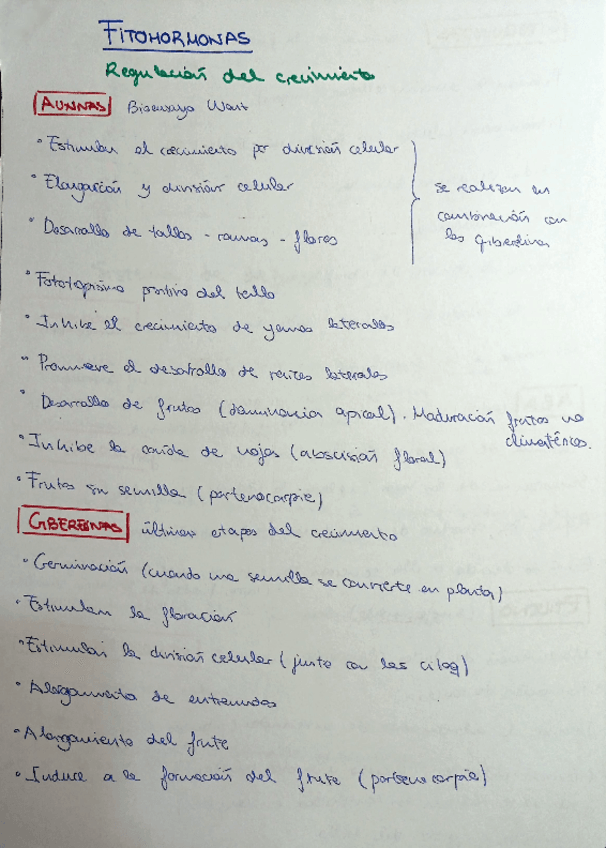 FITOHORMONAS
Regulación del crecimiento
AUXINAS Bioensayo Went
• Estimulan el crecimiento por división celular
• Elongación y división celular
• Desarrollo de tallos - ramas - flores
se realizan en
combinación con
las giberelinas
• Fototropismo positivo del tallo
• Inhibe el crecimiento de yemas laterales
• Promueve el desarrollo de raíces laterales
• Desarrollo de frutos (dominancia apical). Maduración frutos no
climatéricos.
• Inhibe la caída de hojas (abscisión floral)
• Frutos sin semilla (partenocarpia)
GIBERELINAS últimas etapas del crecimiento
• Germinación (cuando una semilla se convierte en planta)
• Estimulan la floración
• Estimulan la división celular (junto con las citoq)
• Alargamiento de entrenudos
• Alargamiento del fruto
• Induce a la formación del fruto (partenocarpia)